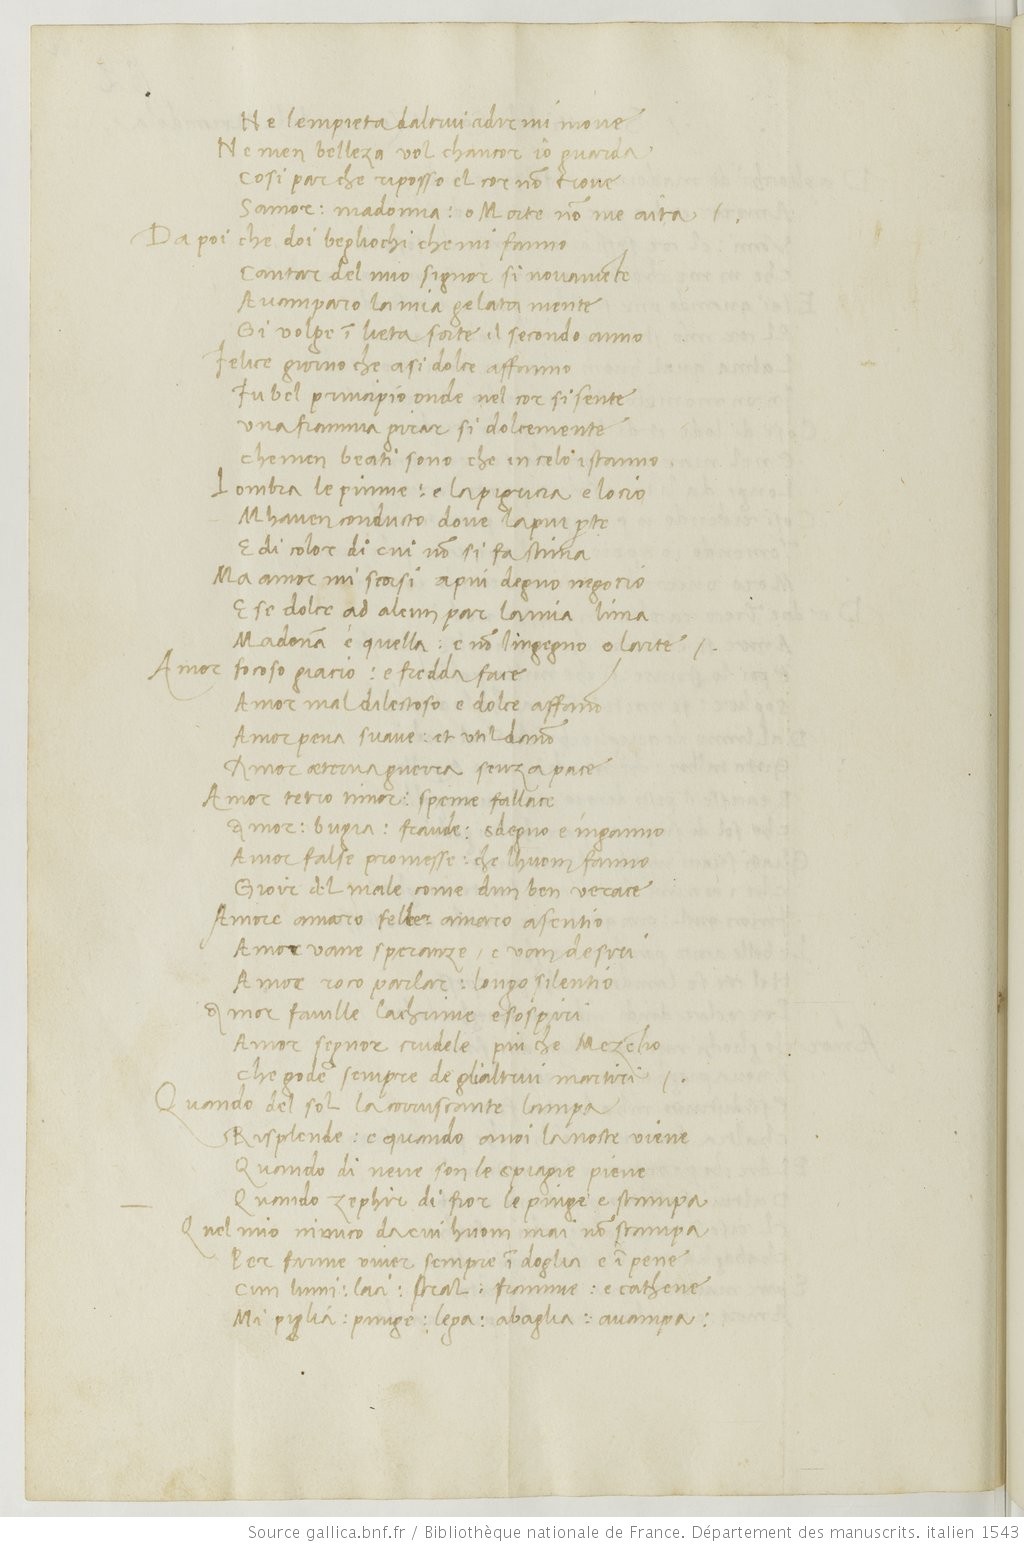 Ne lempieta daltrui adir mi move
Ne men belleza vol chancor io guarda
Cosi par che riposso el cor nō trove
Samor: madonna: o Morte nō me aita /.
Da poi che doi begliochi che mi fanno
Cantar del mio signor si novamēte
Avamparo la mia gelata mente
Si volge ī lieta sorte il secondo anno
Felice giorno che a si dolce affanno
Fu bel principio onde nel cor si sente
Una fiamma girar si dolcemente
che men beati sono che in celo istanno
Lombra le piume: e la pigricia e locio
Mhaven conducto dove la piu pte
E di color di cui nō si fa stima
Ma amor mi scorsi a piu degno negocio
E se dolce ad alcun par la mia lima
Madonā e quella: e nō lingegno o larte /.
Amor focoso giacio: e fredda face
Amor mal dilectoso e dolce affano
Amor pena suave: et util danō
Amor æterna guerra senza pace
Amor tetro timor: speme fallace
Amor: bugia: fraude: sdegno e inganno
Amor false promesse: che lhuom fanno
Gioir del male come dun ben verace
Amore amaro felle: amaro asentio
Amor vane speranze, e van desiri
Amor roco parlar: longo silentio
Amor faville lachrime e sospiri
Amor segnor crudele piu che Mezentio
che gode sempre de glialtrui martiri /.
Quando del sol la corruscante lampa
Risplende: e quando a noi la nocte viene
Quando di neve son le spiagie piene
Quando zephir di fior le pinge e stampa
Quel mio nimico da cui huom mai nō scampa
Per farme viver sempre ī doglia e ī pene
Cun lumi: laci: stral: fiamme: e cathene
Mi piglia: punge: lega: abaglia: avampa:
Source gallica.bnf.fr / Bibliothèque nationale de France. Département des manuscrits. italien 1543